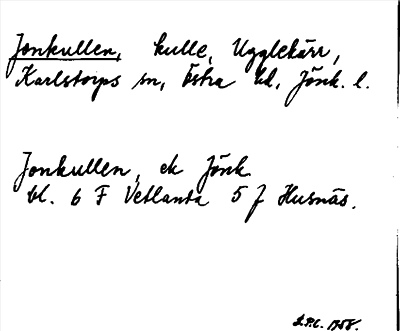 Jonkullen, kulle, Ugglekärr,
Karlstorps sn, Östra hd, Jönk. l.
Jonkullen, ek Jönk
bl. 6 F Vetlanda 5 f Husnäs.
1958.